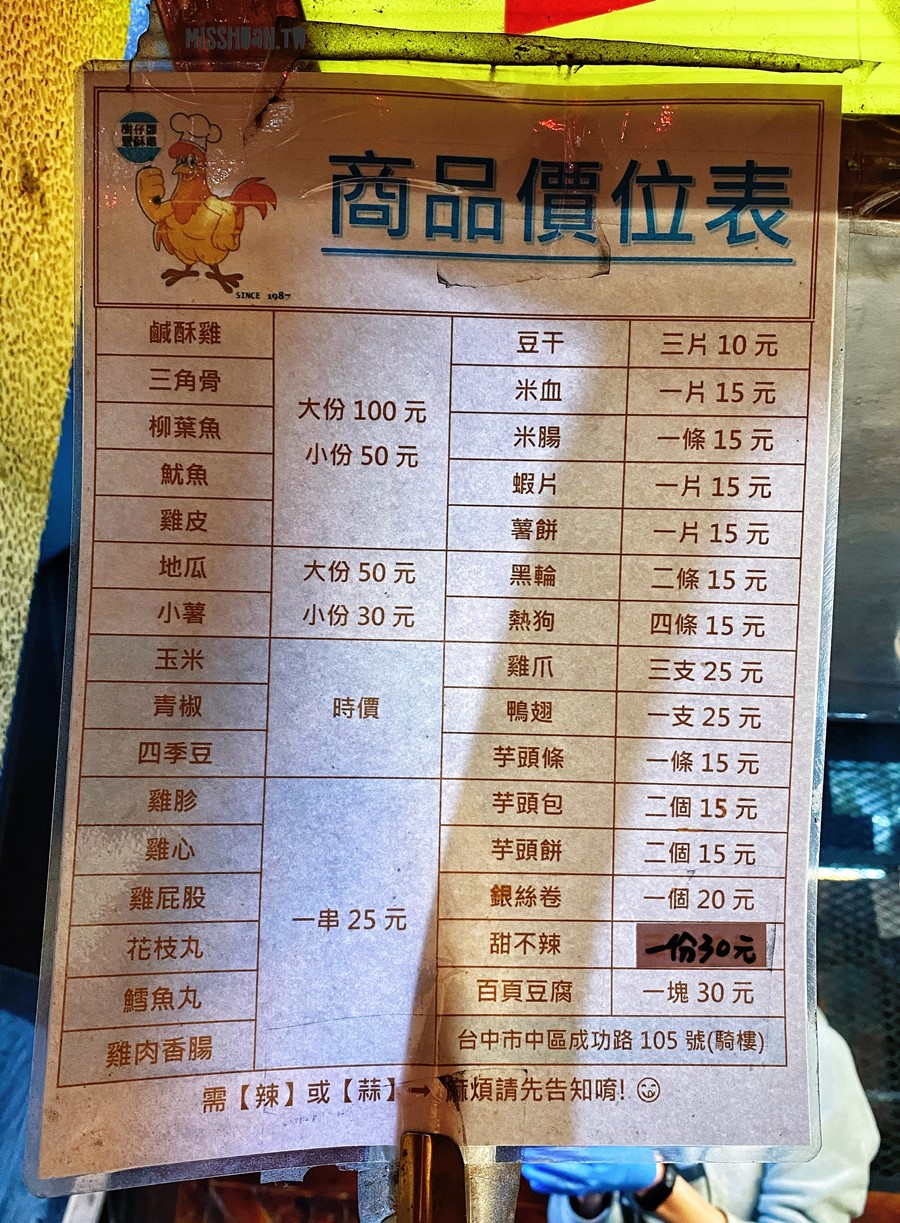 MISSHUAN.TW
商品價位表
SINCE 1987
鹹酥雞
三角骨
柳葉魚
魷魚
雞皮
大份 100 元
小份 50 元
地瓜
小薯
大份 50 元
小份 30 元
玉米
青椒
四季豆
時價
雞胗
雞心
雞屁股
花枝丸
鱈魚丸
雞肉香腸
一串 25 元
豆干 三片 10 元
米血 一片 15 元
米腸 一條 15 元
蝦片 一片 15 元
薯餅 一片 15 元
黑輪 二條 15 元
熱狗 四條 15 元
雞爪 三支 25 元
鴨翅 一支 25 元
芋頭條 一條 15 元
芋頭包 二個 15 元
芋頭餅 二個 15 元
銀絲卷 一個 20 元
甜不辣 一份30元
百頁豆腐 一塊 30 元
台中市中區成功路 105 號(騎樓)
需【辣】或【蒜】→ 麻煩請先告知唷! 😋